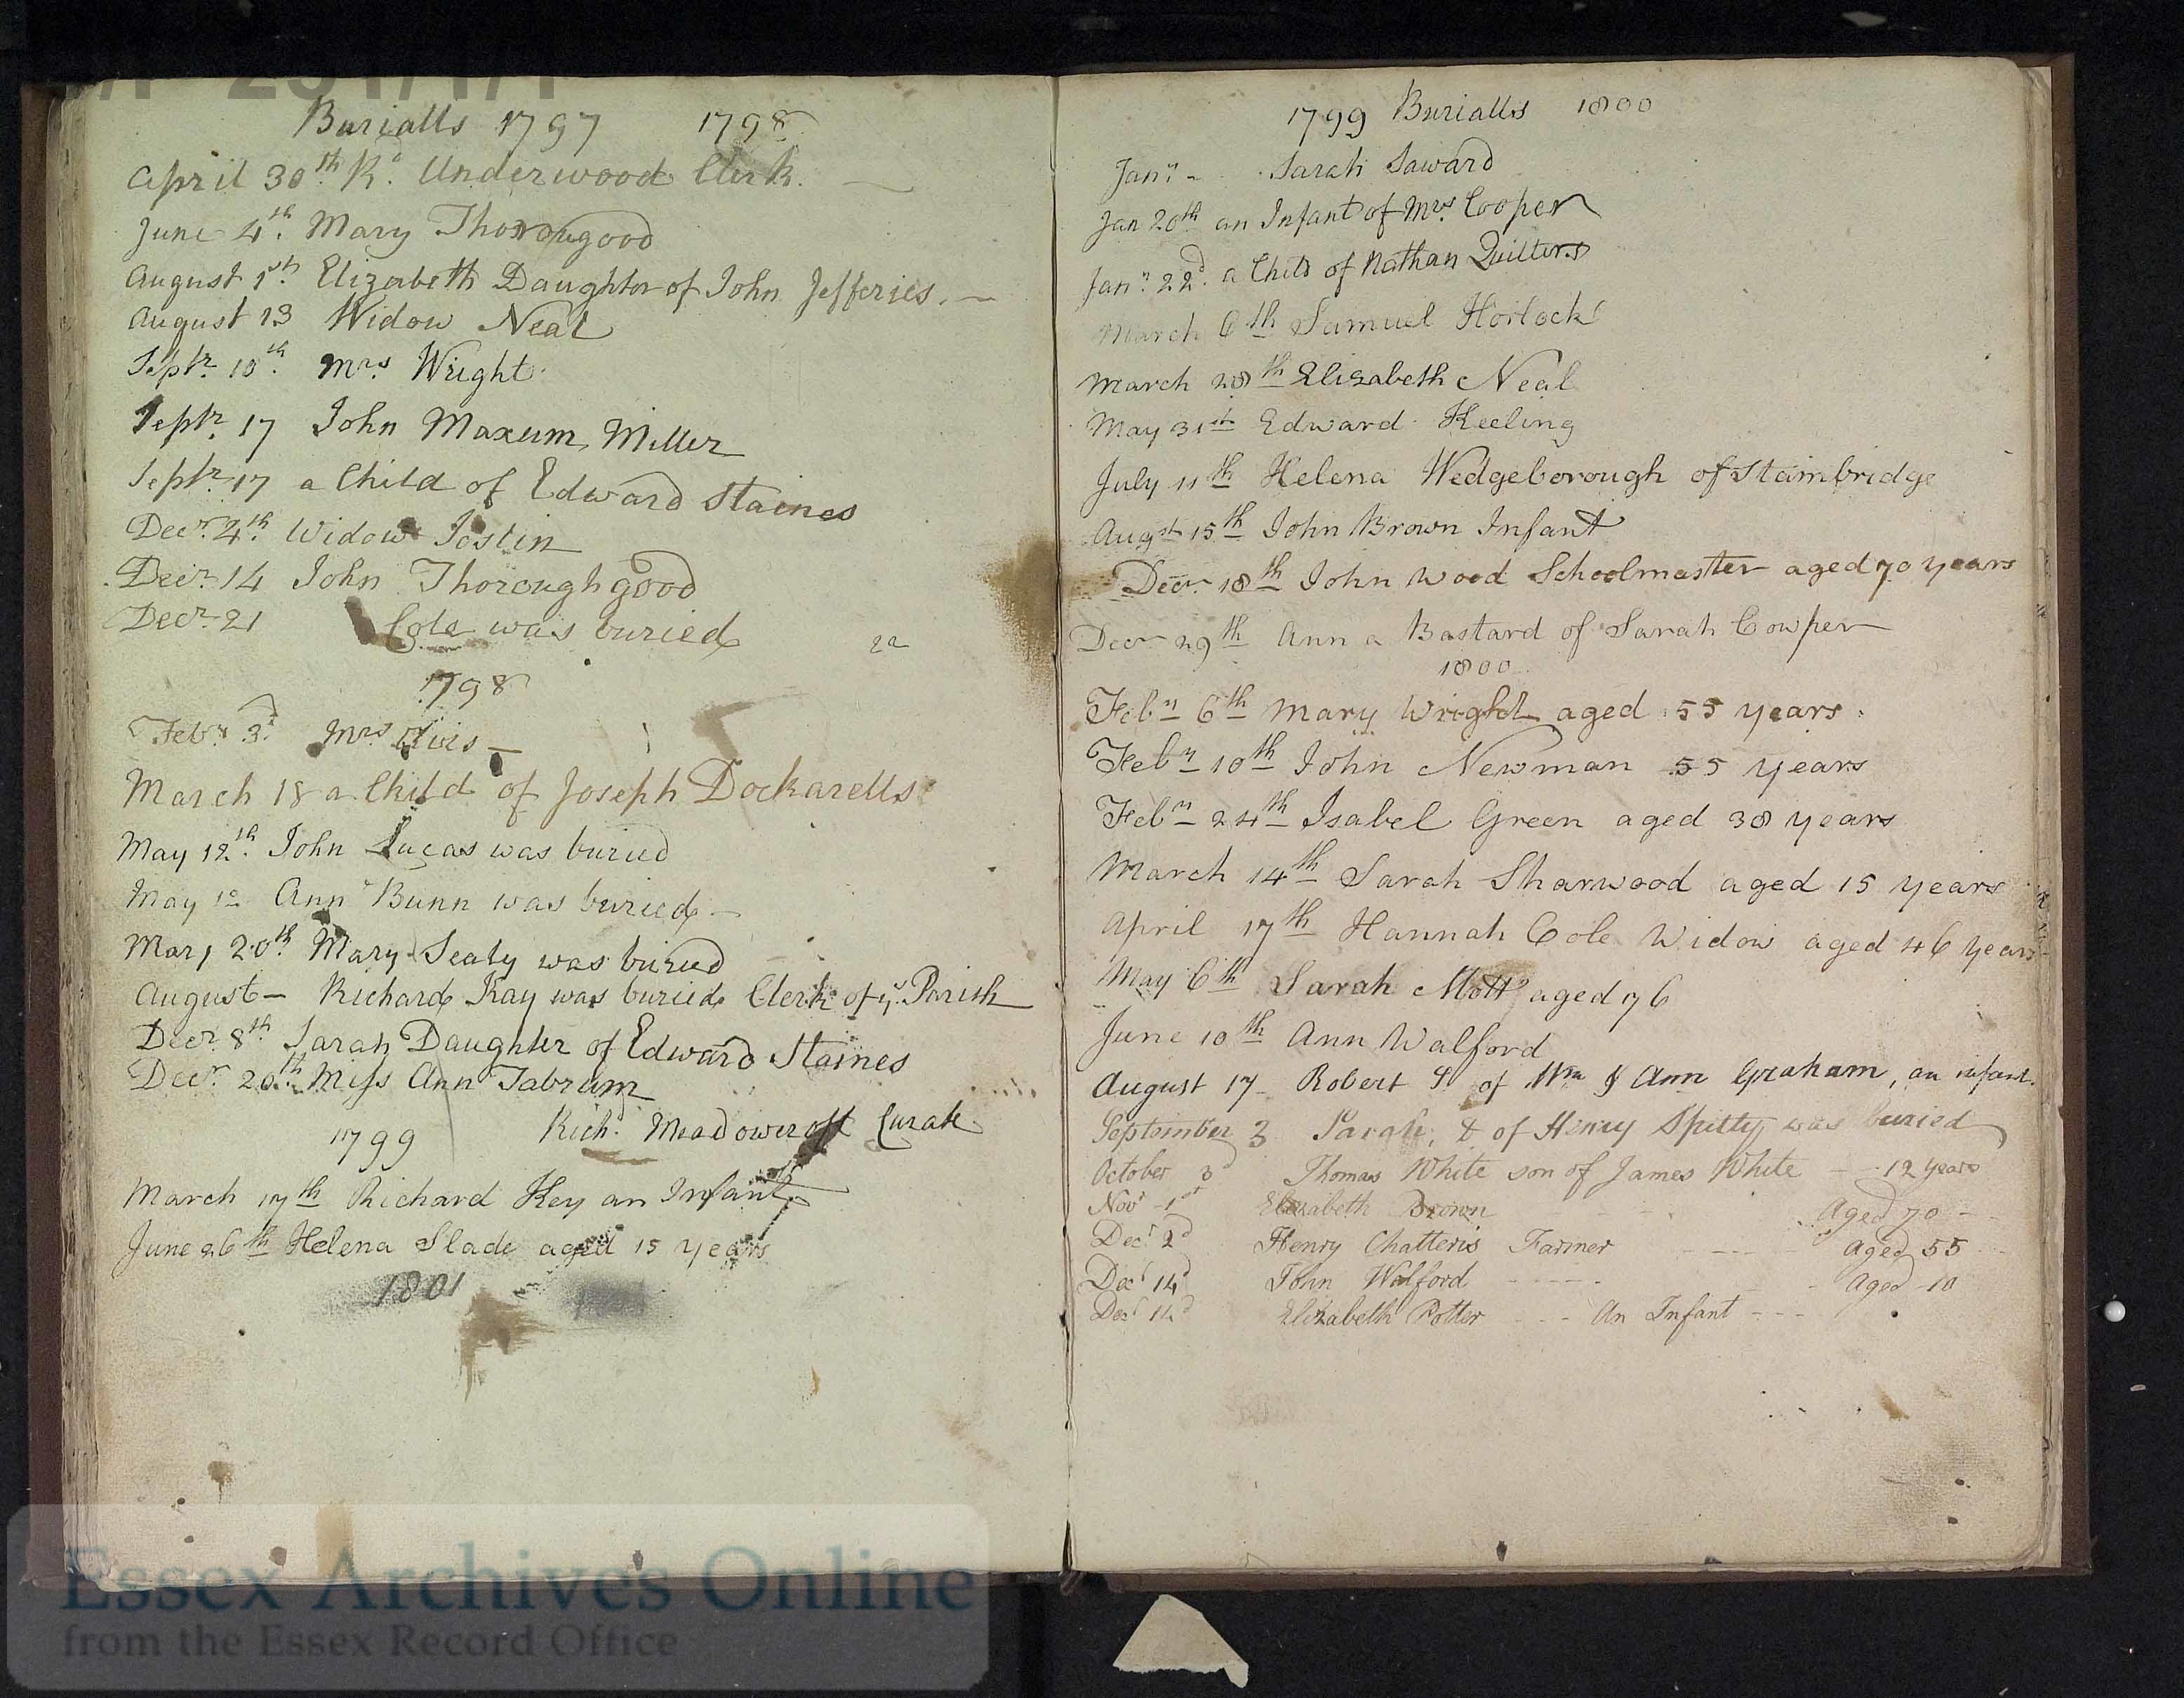 Burialls 1797 1798
April 30th. Rd. Underwood Clerk.
June 4th. Mary Thorougood
August 1st. Elizabeth Daughter of John Jefferies.
August 13 Widow Neal
Septr. 10th. Mrs. Wright
Septr. 17 John Maxum, Miller
Septr. 17 a Child of Edward Staines
Decr. 4th. Widow Jostin
Decr. 14 John Thoroughgood
Decr. 21 Cole was buried
22
1798
Feby. 3d. Mrs.
March 18 a Child of Joseph Dockarells
May 12th. John Lucas was buried
May 12 Ann Bunn was buried
May 20th. Mary Sealy was buried
August - Richard Kay was buried Clerk of ys. Parish
Decr. 8th. Sarah Daughter of Edward Staines
Decr. 20th. Miss Ann Tabrum
Richd. Meadowcroft Curate
1799
March 17th Richard Key an Infant
June 26th Helena Slade aged 15 years
1801
1799 Burialls 1800
Jany. - Sarah Saward
Jan 20th an Infant of Mrs. Cooper
Jany. 22d. a Child of Nathan Quilters
March 6th Samuel Horlock
March 28th Elizabeth Neal
May 31st Edward Keeling
July 11th Helena Wedgeborough of Stambridge
Augst 15th John Brown Infant
Decr. 18th John Wood Schoolmaster aged 70 years
Decr 29th Ann a Bastard of Sarah Cowper
1800
Feby 6th Mary Wright aged 55 years.
Feby 10th John Newman 55 years
Feby 24th Isabel Green aged 38 years
March 14th Sarah Sharwood aged 15 years
April 17th Hannah Cole Widow aged 46 years
May 6th Sarah Mott aged 76
June 10th Ann Walford
August 17 Robert S. of Wm & Ann Graham, an infant.
September 3 Sarah, D of Henry Spitty, was buried
October 3d Thomas White son of James White 12 years
Novr 1st Elizabeth Brown Aged 70
Decr 2d Henry Chatteris Farmer Aged 55
Decr 14d John Walford Aged 10
Decr 14d Elizabeth Potter An Infant
Essex Archives Online
from the Essex Record Office